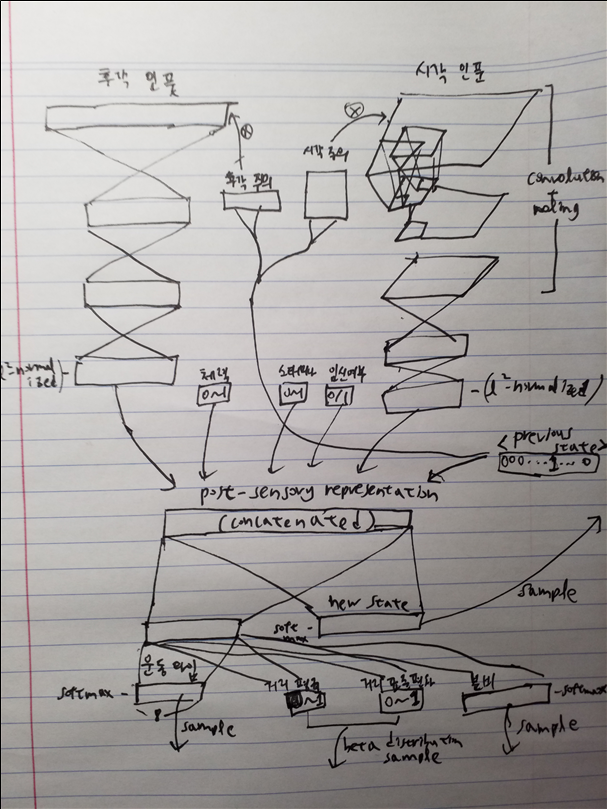 후각 인풋
시각 인풋
후각 주의
시각 주의
convolution
l²-normal
ized
체력
0~1
0~1
임신여부
0/1
(l²-normalized)
<previous
state>
000...1...0
post-sensory representation
(concatenated)
new state
soft
max
sample
운동 타입
softmax
8
sample
거리 평균
0~1
거리 표준편차
0~1
분비
softmax
beta distribution
sample
sample